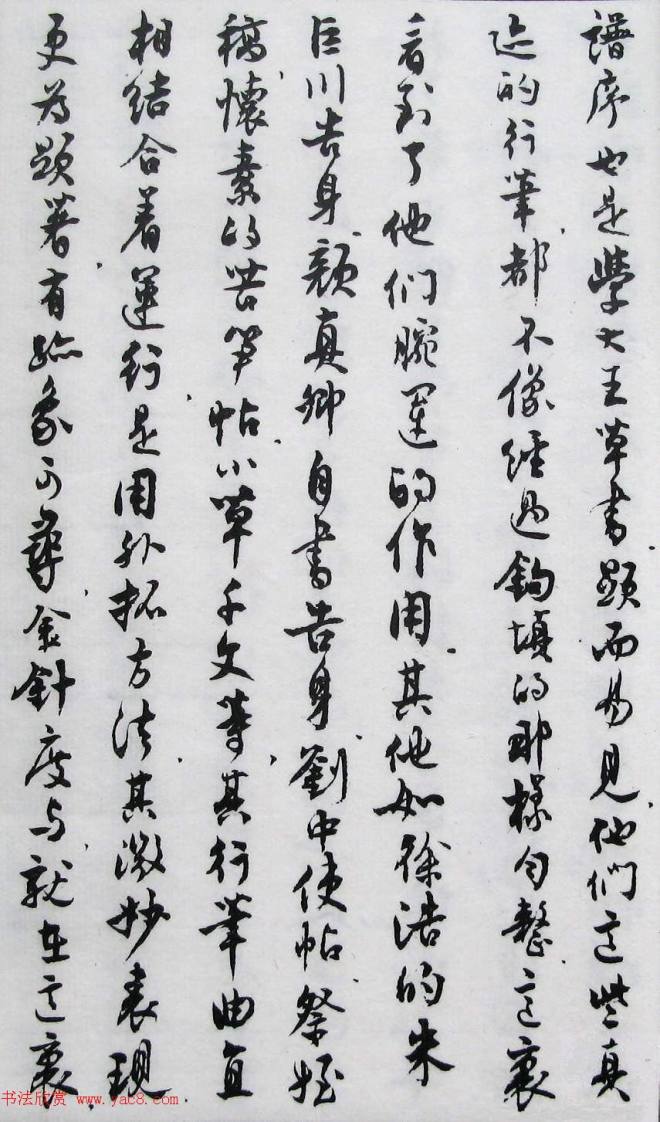 譜序也是學大王草書顯而易見他們這些真
迹的行筆都不像經過鈎填的那樣勻整這裏
看到了他們腕運的作用其他如徐浩的朱
巨川告身顏真卿自書告身劉中使帖祭姪
稿懷素的苦笋帖小草千文等其行筆曲直
相結合着運行是用外拓方法其微妙表現
更為顯著有跡象可尋金針度與就在這裏
书法欣赏 www.yac8.com